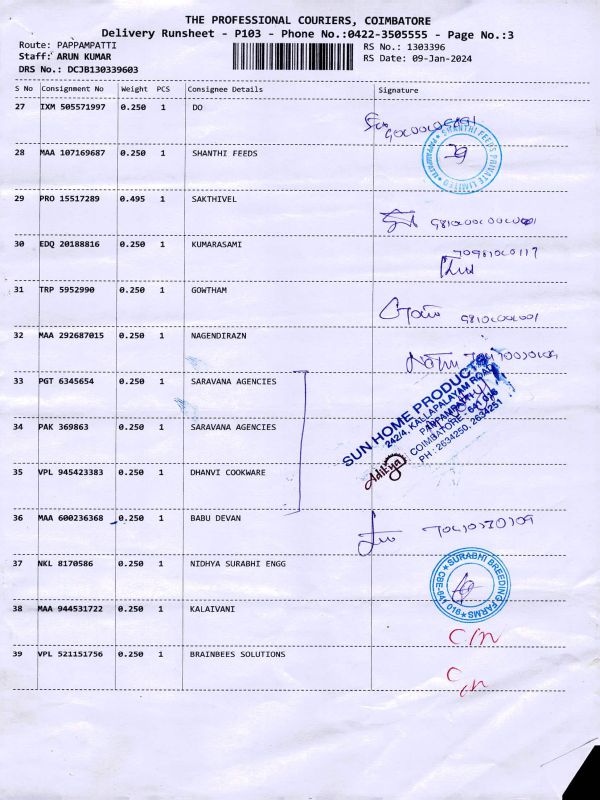 THE PROFESSIONAL COURIERS, COIMBATORE
Delivery Runsheet - P103 - Phone No.:0422-3505555 - Page No.:3
Route: PAPPAMPATTI RS No.: 1303396
Staff: ARUN KUMAR RS Date: 09-Jan-2024
DRS No.: DCJB130339603
S No Consignment No Weight PCS Consignee Details Signature
27 IXM 505571997 0.250 1 DO
28 MAA 107169687 0.250 1 SHANTHI FEEDS
SHANTHI FEEDS PRIVATE LIMITED
29 PRO 15517289 0.495 1 SAKTHIVEL
30 EDQ 20188816 0.250 1 KUMARASAMI
31 TRP 5952990 0.250 1 GOWTHAM
32 MAA 292687015 0.250 1 NAGENDIRAZN
33 PGT 6345654 0.250 1 SARAVANA AGENCIES
34 PAK 369863 0.250 1 SARAVANA AGENCIES
SUN HOME PRODUCTS
242/4, KALLAPALAYAM ROAD
PAPPAMPATTI
COIMBATORE - 641 016
PH : 2634250, 2634251
Aditya
35 VPL 945423383 0.250 1 DHANVI COOKWARE
36 MAA 600236368 0.250 1 BABU DEVAN
37 NKL 8170586 0.250 1 NIDHYA SURABHI ENGG
SURABHI BREEDING FARMS
CBE-641 016
38 MAA 944531722 0.250 1 KALAIVANI
C/N
39 VPL 521151756 0.250 1 BRAINBEES SOLUTIONS